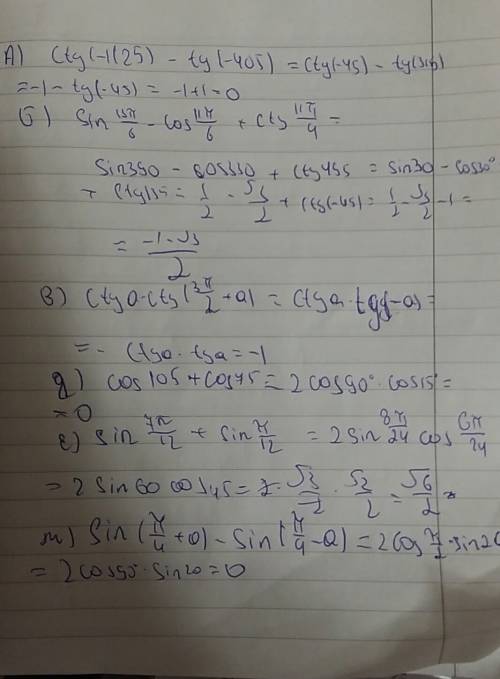 А) ctg(-1125) - tg(-405) = ctg(-45) - tg(315)
= -1 - tg(-45) = -1+1=0
б) sin 13π/6 - cos 11π/6 + ctg 11π/4 =
sin390 - cos330 + ctg495 = sin30 - cos30°
+ ctg135 = 1/2 - √3/2 + ctg(-45) = 1/2 - √3/2 - 1 =
= (-1-√3)/2
в) ctga·ctg(3π/2 + a) = ctga·tg(-a) =
= - ctga·tga = -1
д) cos105 + cos75 = 2cos90°·cos15° =
= 0
е) sin 7π/12 + sin π/12 = 2sin 8π/24 cos 6π/24
= 2 sin60 cos45 = 2·√3/2·√2/2 = √6/2
ж) Sin(π/4 + a) - Sin(π/4 - a) = 2cos π/2·sin2
= 2cos90·sin2a = 0